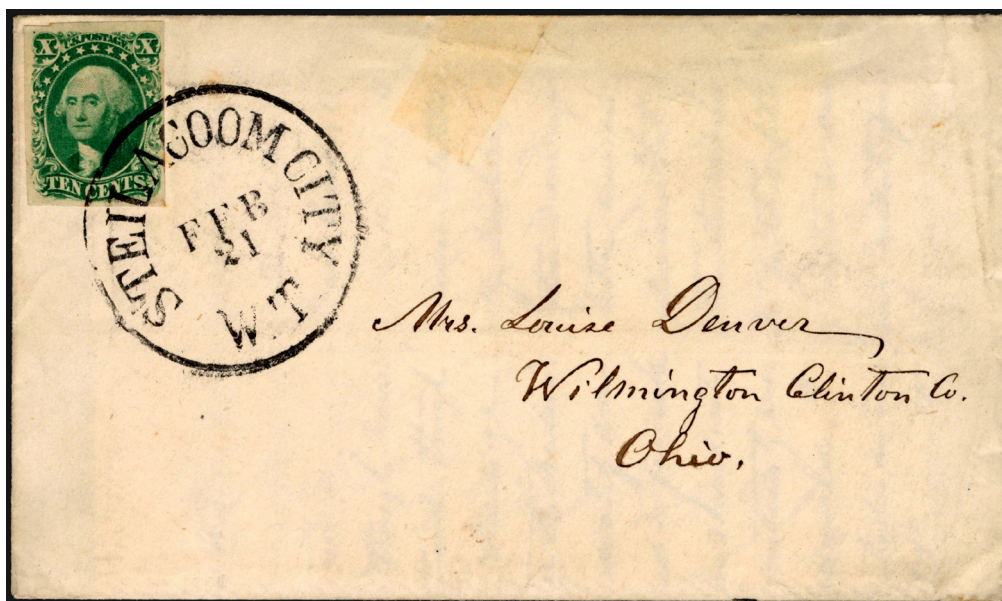 X U.S. POSTAGE X
TEN CENTS
STEILACOOM CITY
FEB
21
W.T.
Mrs. Louise Denver
Wilmington Clinton Co.
Ohio.